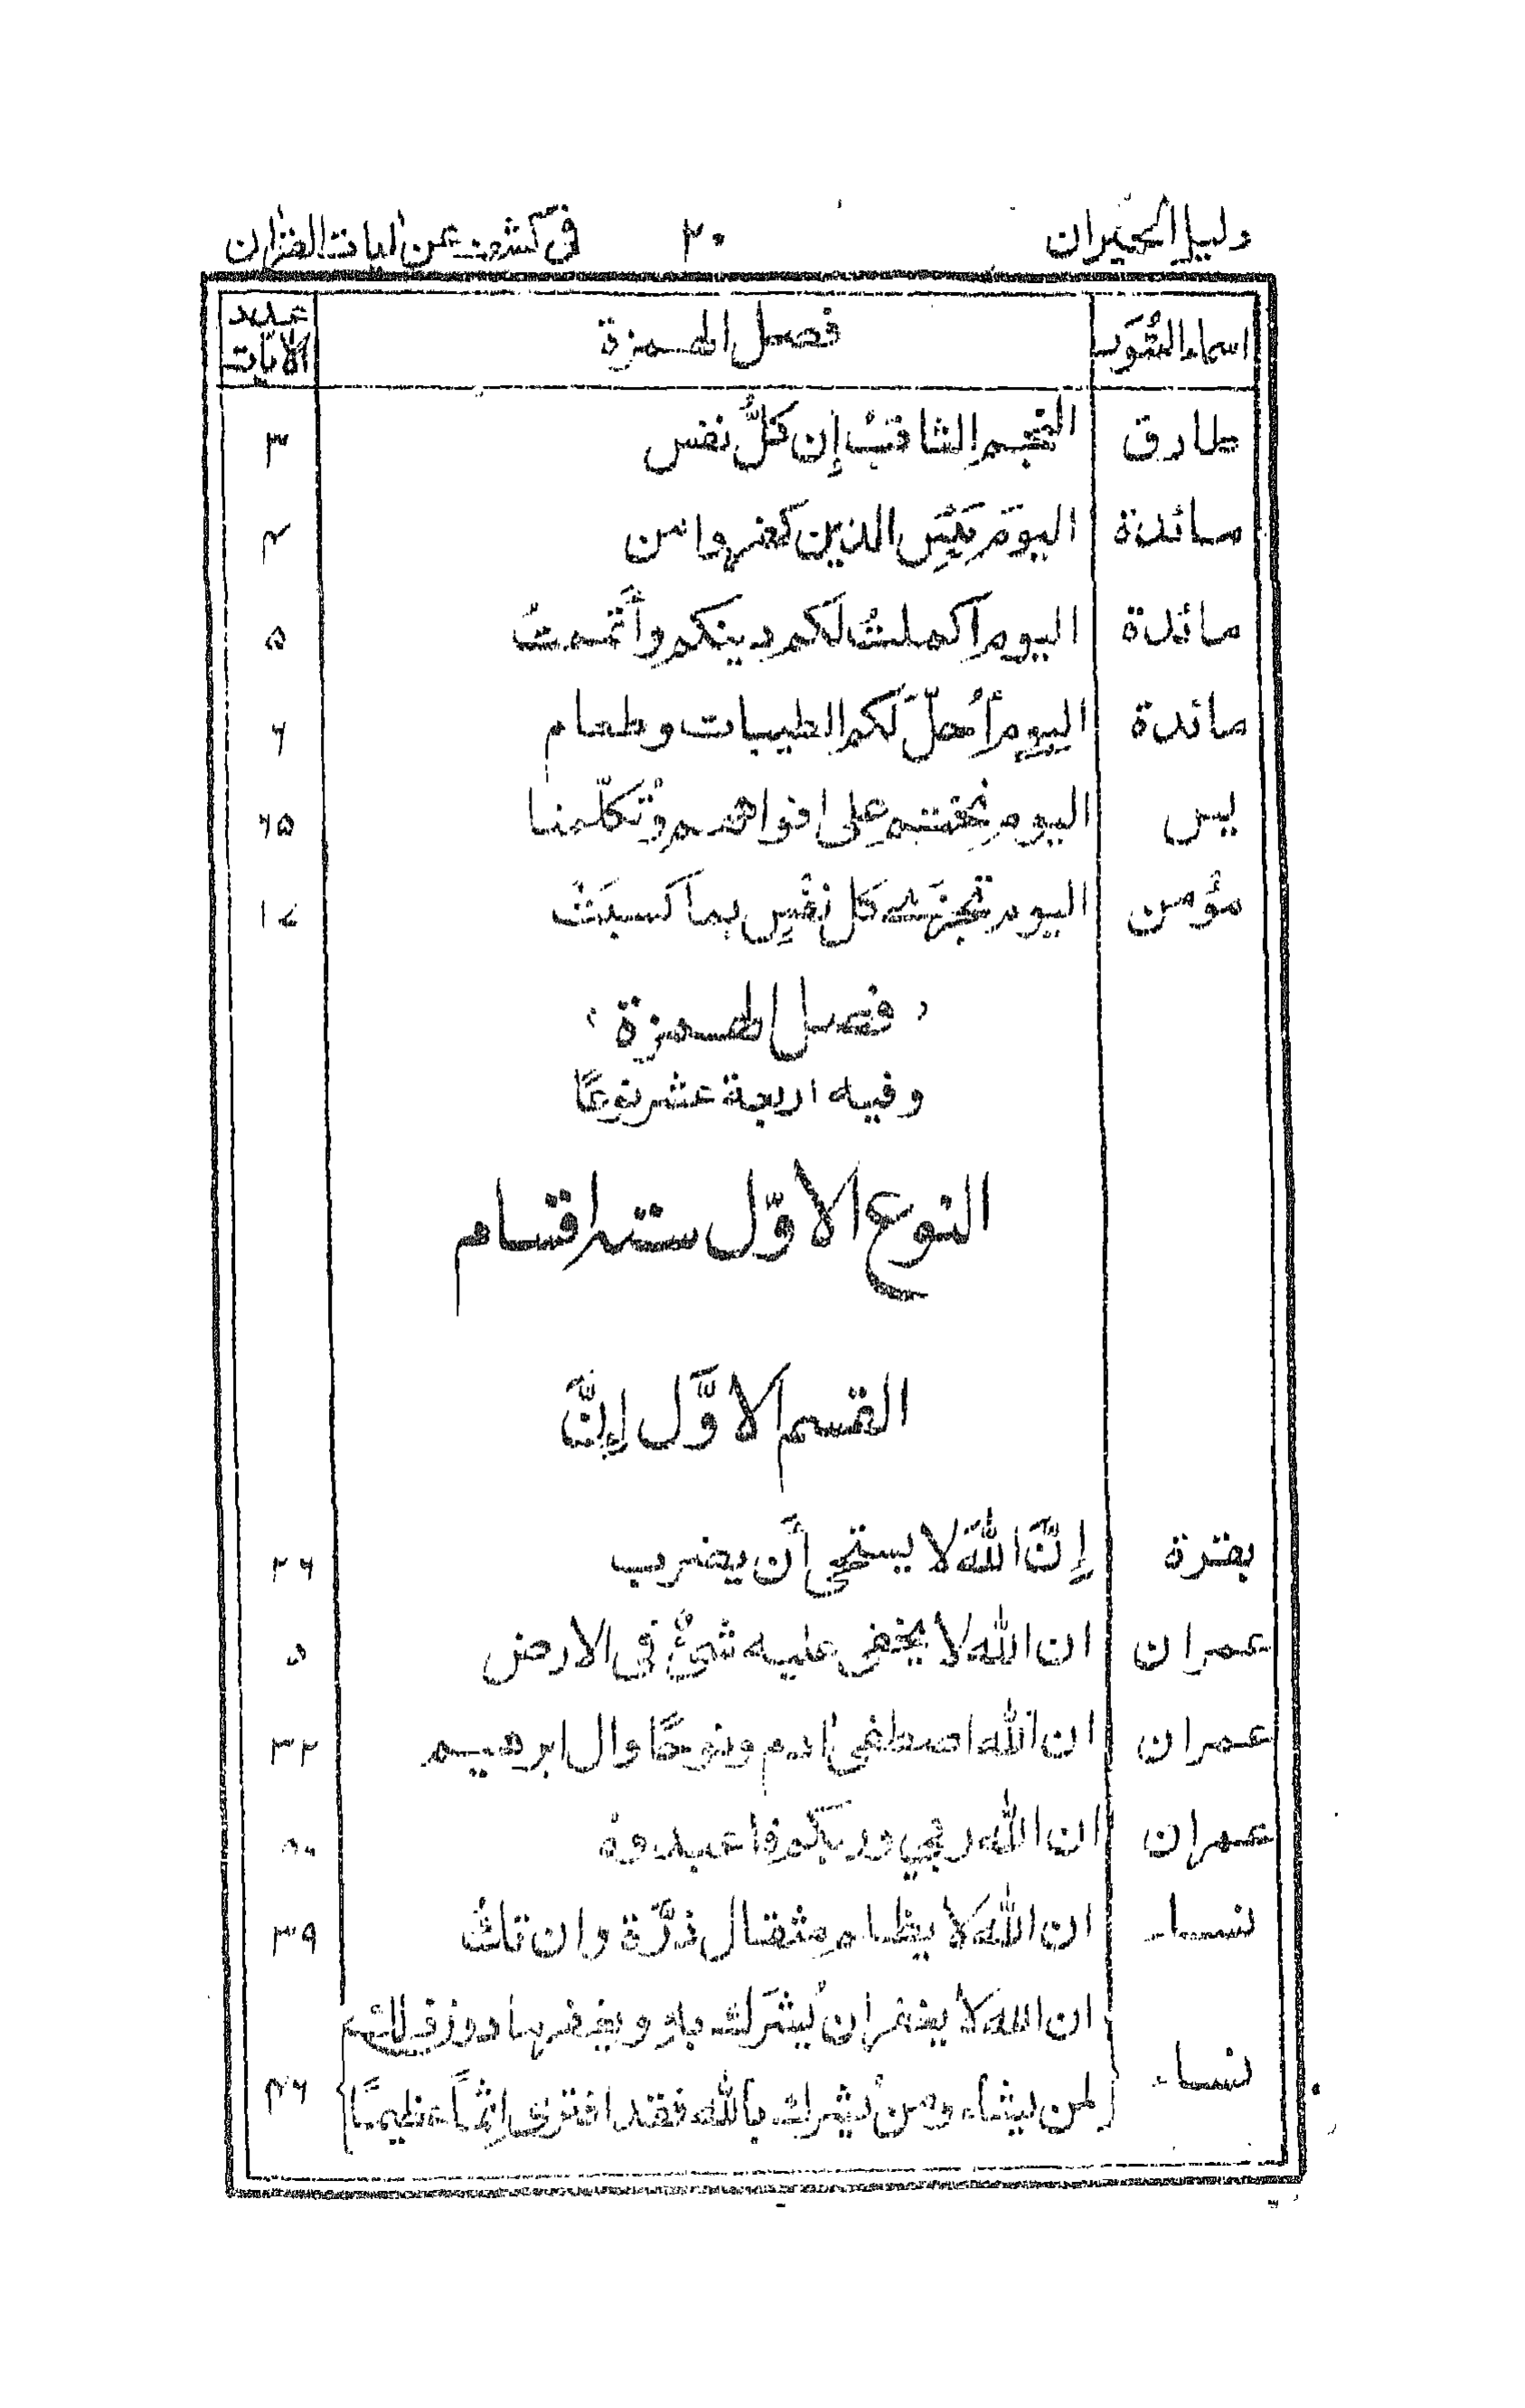 دليل الحيران ٢٠ في كشف عن ايات القران
اسماء السُّوَر فصل الهمزة عدد الآيات
طارق النجم الثاقبُ إن كلُّ نفس ٣
مائدة اليومَ يَئِسَ الذين كفروا من ۴
مائدة اليوم أكملتُ لكم دينكم وأتممتُ ۵
مائدة اليوم أُحلّ لَكم الطيبات وطعام ۶
يس اليوم نختم على افواههم وتُكلّمنا ۶۵
مؤمن اليوم تجزَىٰ كل نفْسٍ بما كسبَتْ ١٧
فصل الهمزة
وفيه اربعة عشر نوعًا
النوع الاوّل ستة اقسام
القسم الاوَّل إِنَّ
بقرة إِنَّ اللهَ لا يستحي أَن يضرب ٢۶
عمران ان الله لا يخفى عليه شئٌ في الارض ۵
عمران ان الله اصطفى اٰدم ونوحًا وال ابرهيم ٣٢
عمران ان الله ربي وربكم فاعبدوه ۵٠
نساء ان اللهَ لا يظلم مثقال ذرَّة وان تكُ ٣٩
نساء ان الله لا يغفر ان يُشرَك به ويغفر ما دون ذلك
لمن يشاء ومن يُشرك بالله فقد افترى إثمًا عظيمًا ۴۶